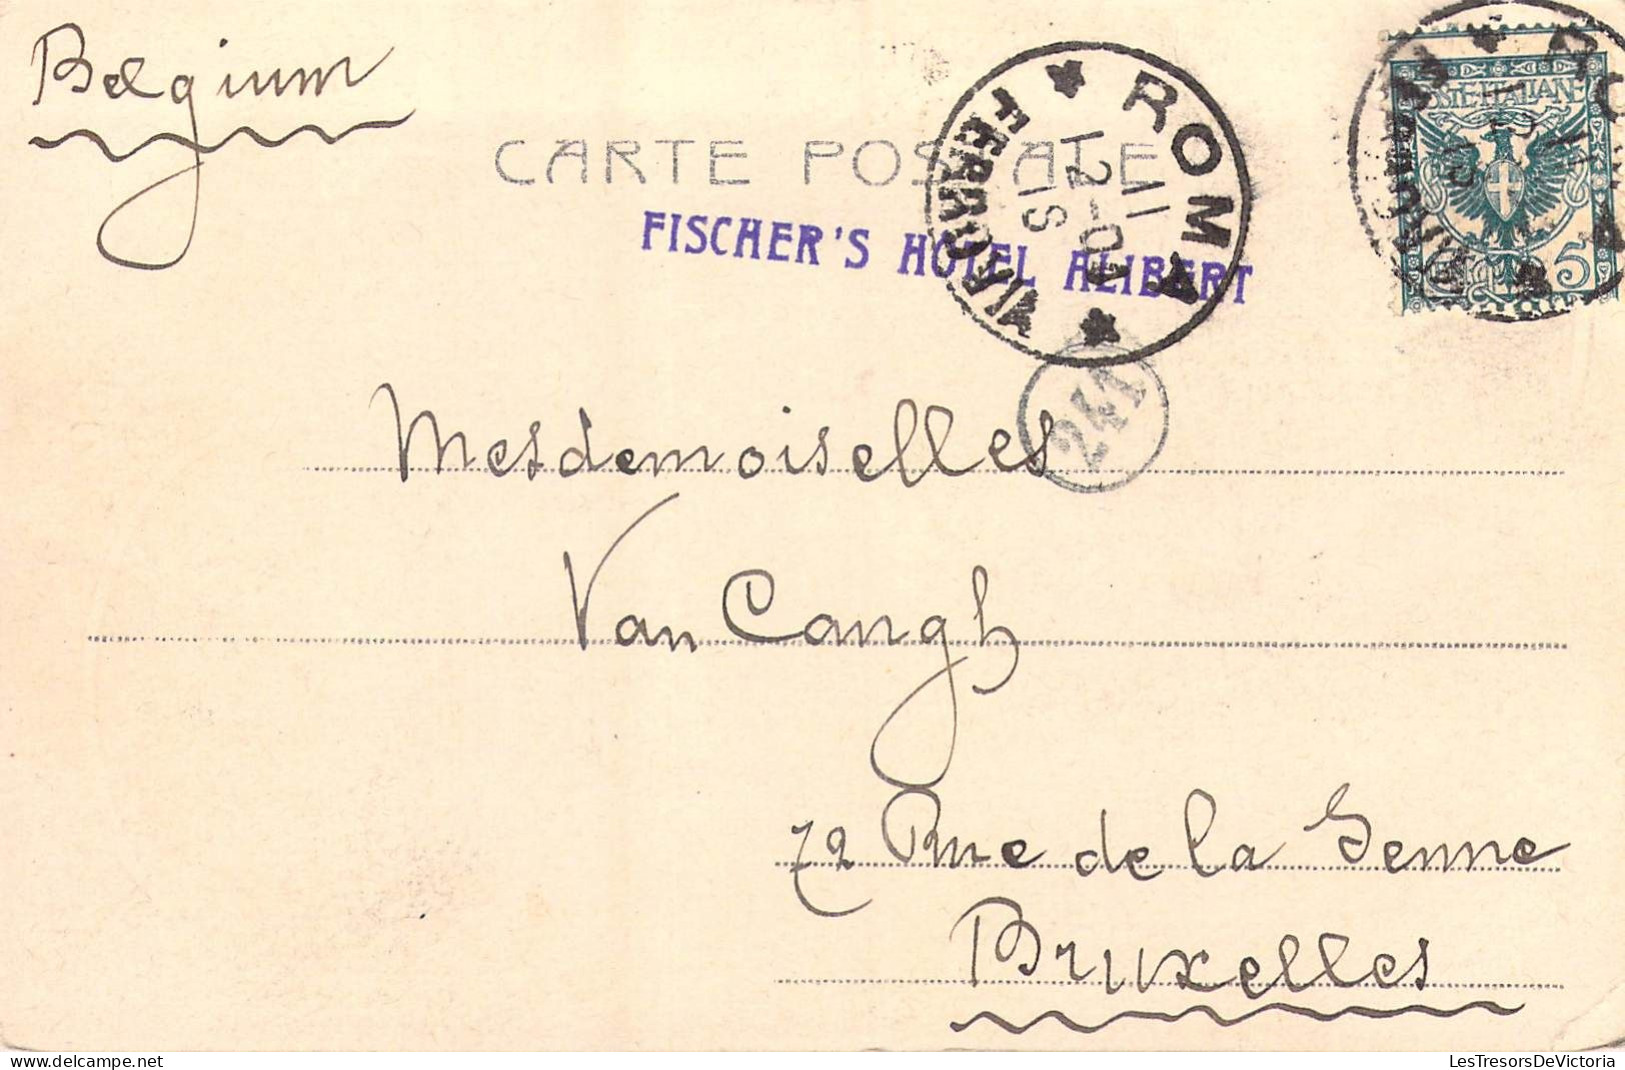 Belgium
CARTE POSTALE
FISCHER'S HOTEL ALIBERT
ROMA
FERROVIA
11 12-01
18
POSTE ITALIANE
5
241
Mesdemoiselles
Van Cangh
72 Rue de la Senne
Bruxelles
LesTresorsDeVictoria